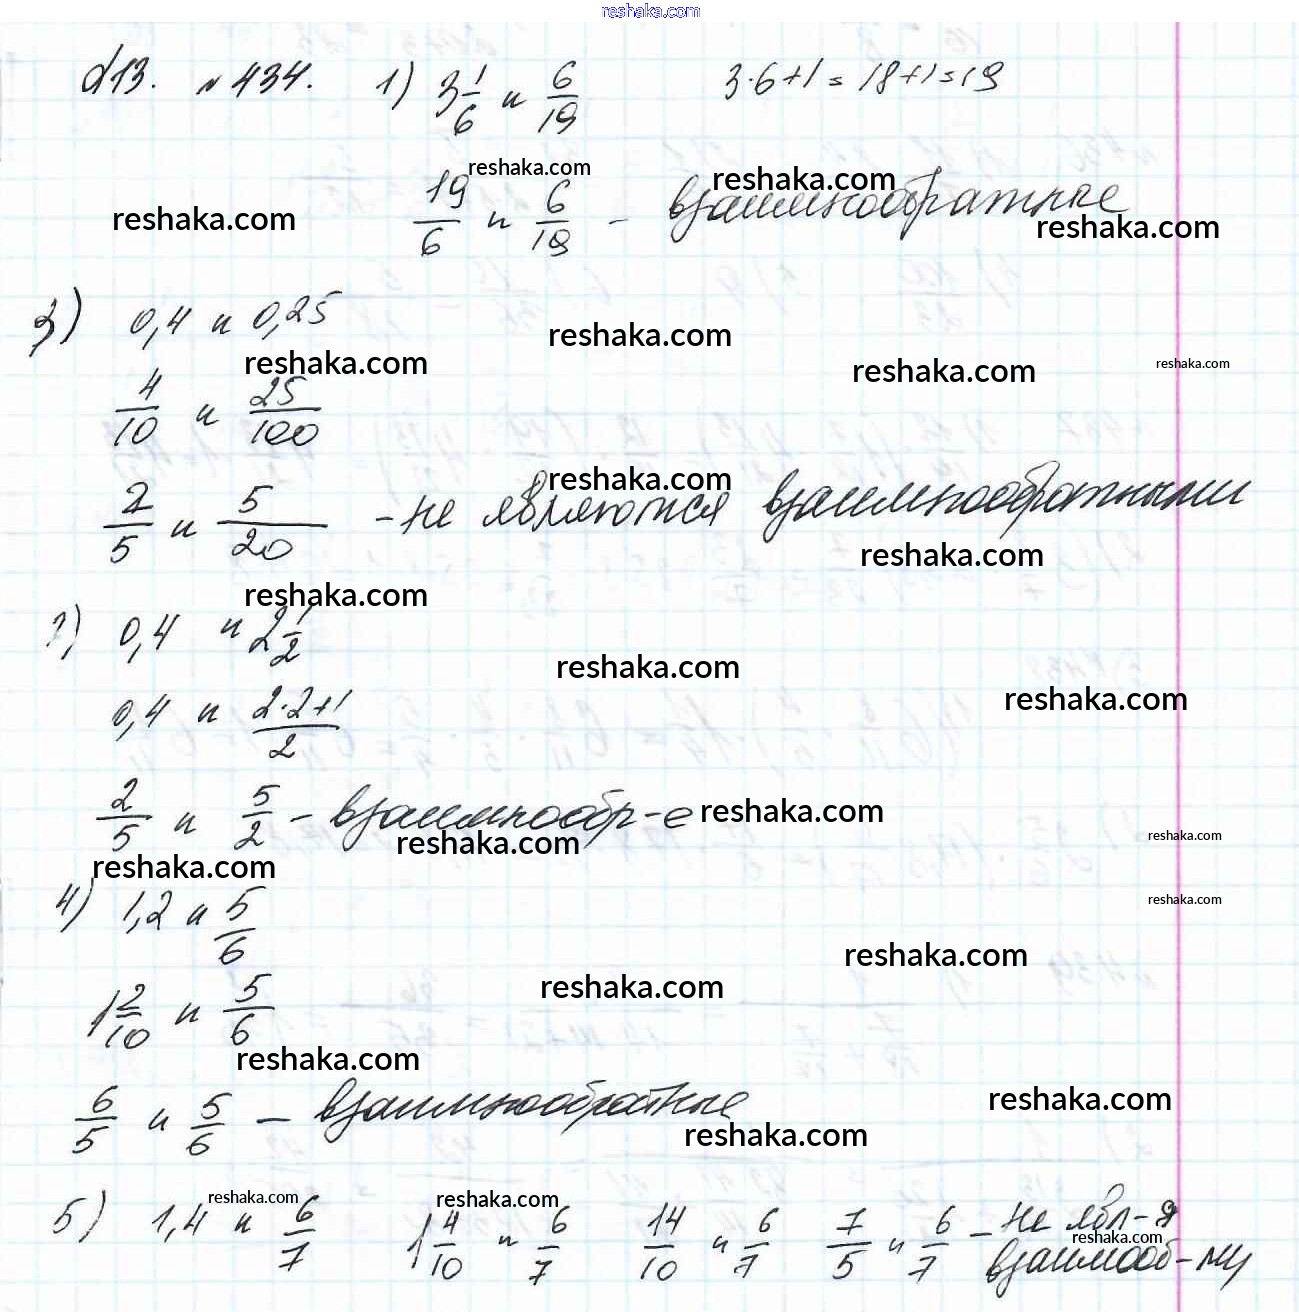 reshaka.com
d13. №434. 1) 3 1/6 и 6/19 3·6+1=18+1=19
reshaka.com
19/6 и 6/19 - взаимнообратные
reshaka.com
reshaka.com
reshaka.com
3) 0,4 и 0,25
reshaka.com
reshaka.com
reshaka.com
reshaka.com
4/10 и 25/100
reshaka.com
2/5 и 5/20 - не являются взаимнообратными
reshaka.com
reshaka.com
2) 0,4 и 2 1/2
reshaka.com
reshaka.com
0,4 и 2·2+1/2
2/5 и 5/2 - взаимнообр-е
reshaka.com
reshaka.com
reshaka.com
reshaka.com
4) 1,2 и 5/6
reshaka.com
reshaka.com
reshaka.com
1 2/10 и 5/6
reshaka.com
6/5 и 5/6 - взаимнообратные
reshaka.com
reshaka.com
reshaka.com
reshaka.com
5) 1,4 и 6/7 1 4/10 и 6/7 14/10 и 6/7 7/5 и 6/7 - не явл-я
reshaka.com
взаимооб-ми